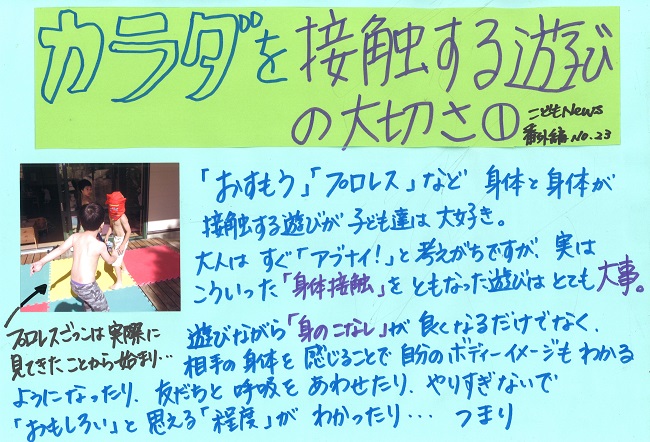 カラダを接触する遊び
の大切さ①
こどもNews
番外編 NO.23
「おすもう」「プロレス」など 身体と身体が
接触する遊びが 子ども達は大好き。
大人は すぐ「アブナイ!」と考えがちですが、実は
こういった「身体接触」を ともなった遊びは とても 大事。
プロレスごっこは実際に
見てきたことから始まり…
遊びながら「身のこなし」が 良くなるだけでなく、
相手の身体を 感じることで 自分のボディーイメージも わかる
ようになったり、友だちと 呼吸を あわせたり、やりすぎないで
「おもしろい」と 思える「程度」が わかったり… つまり